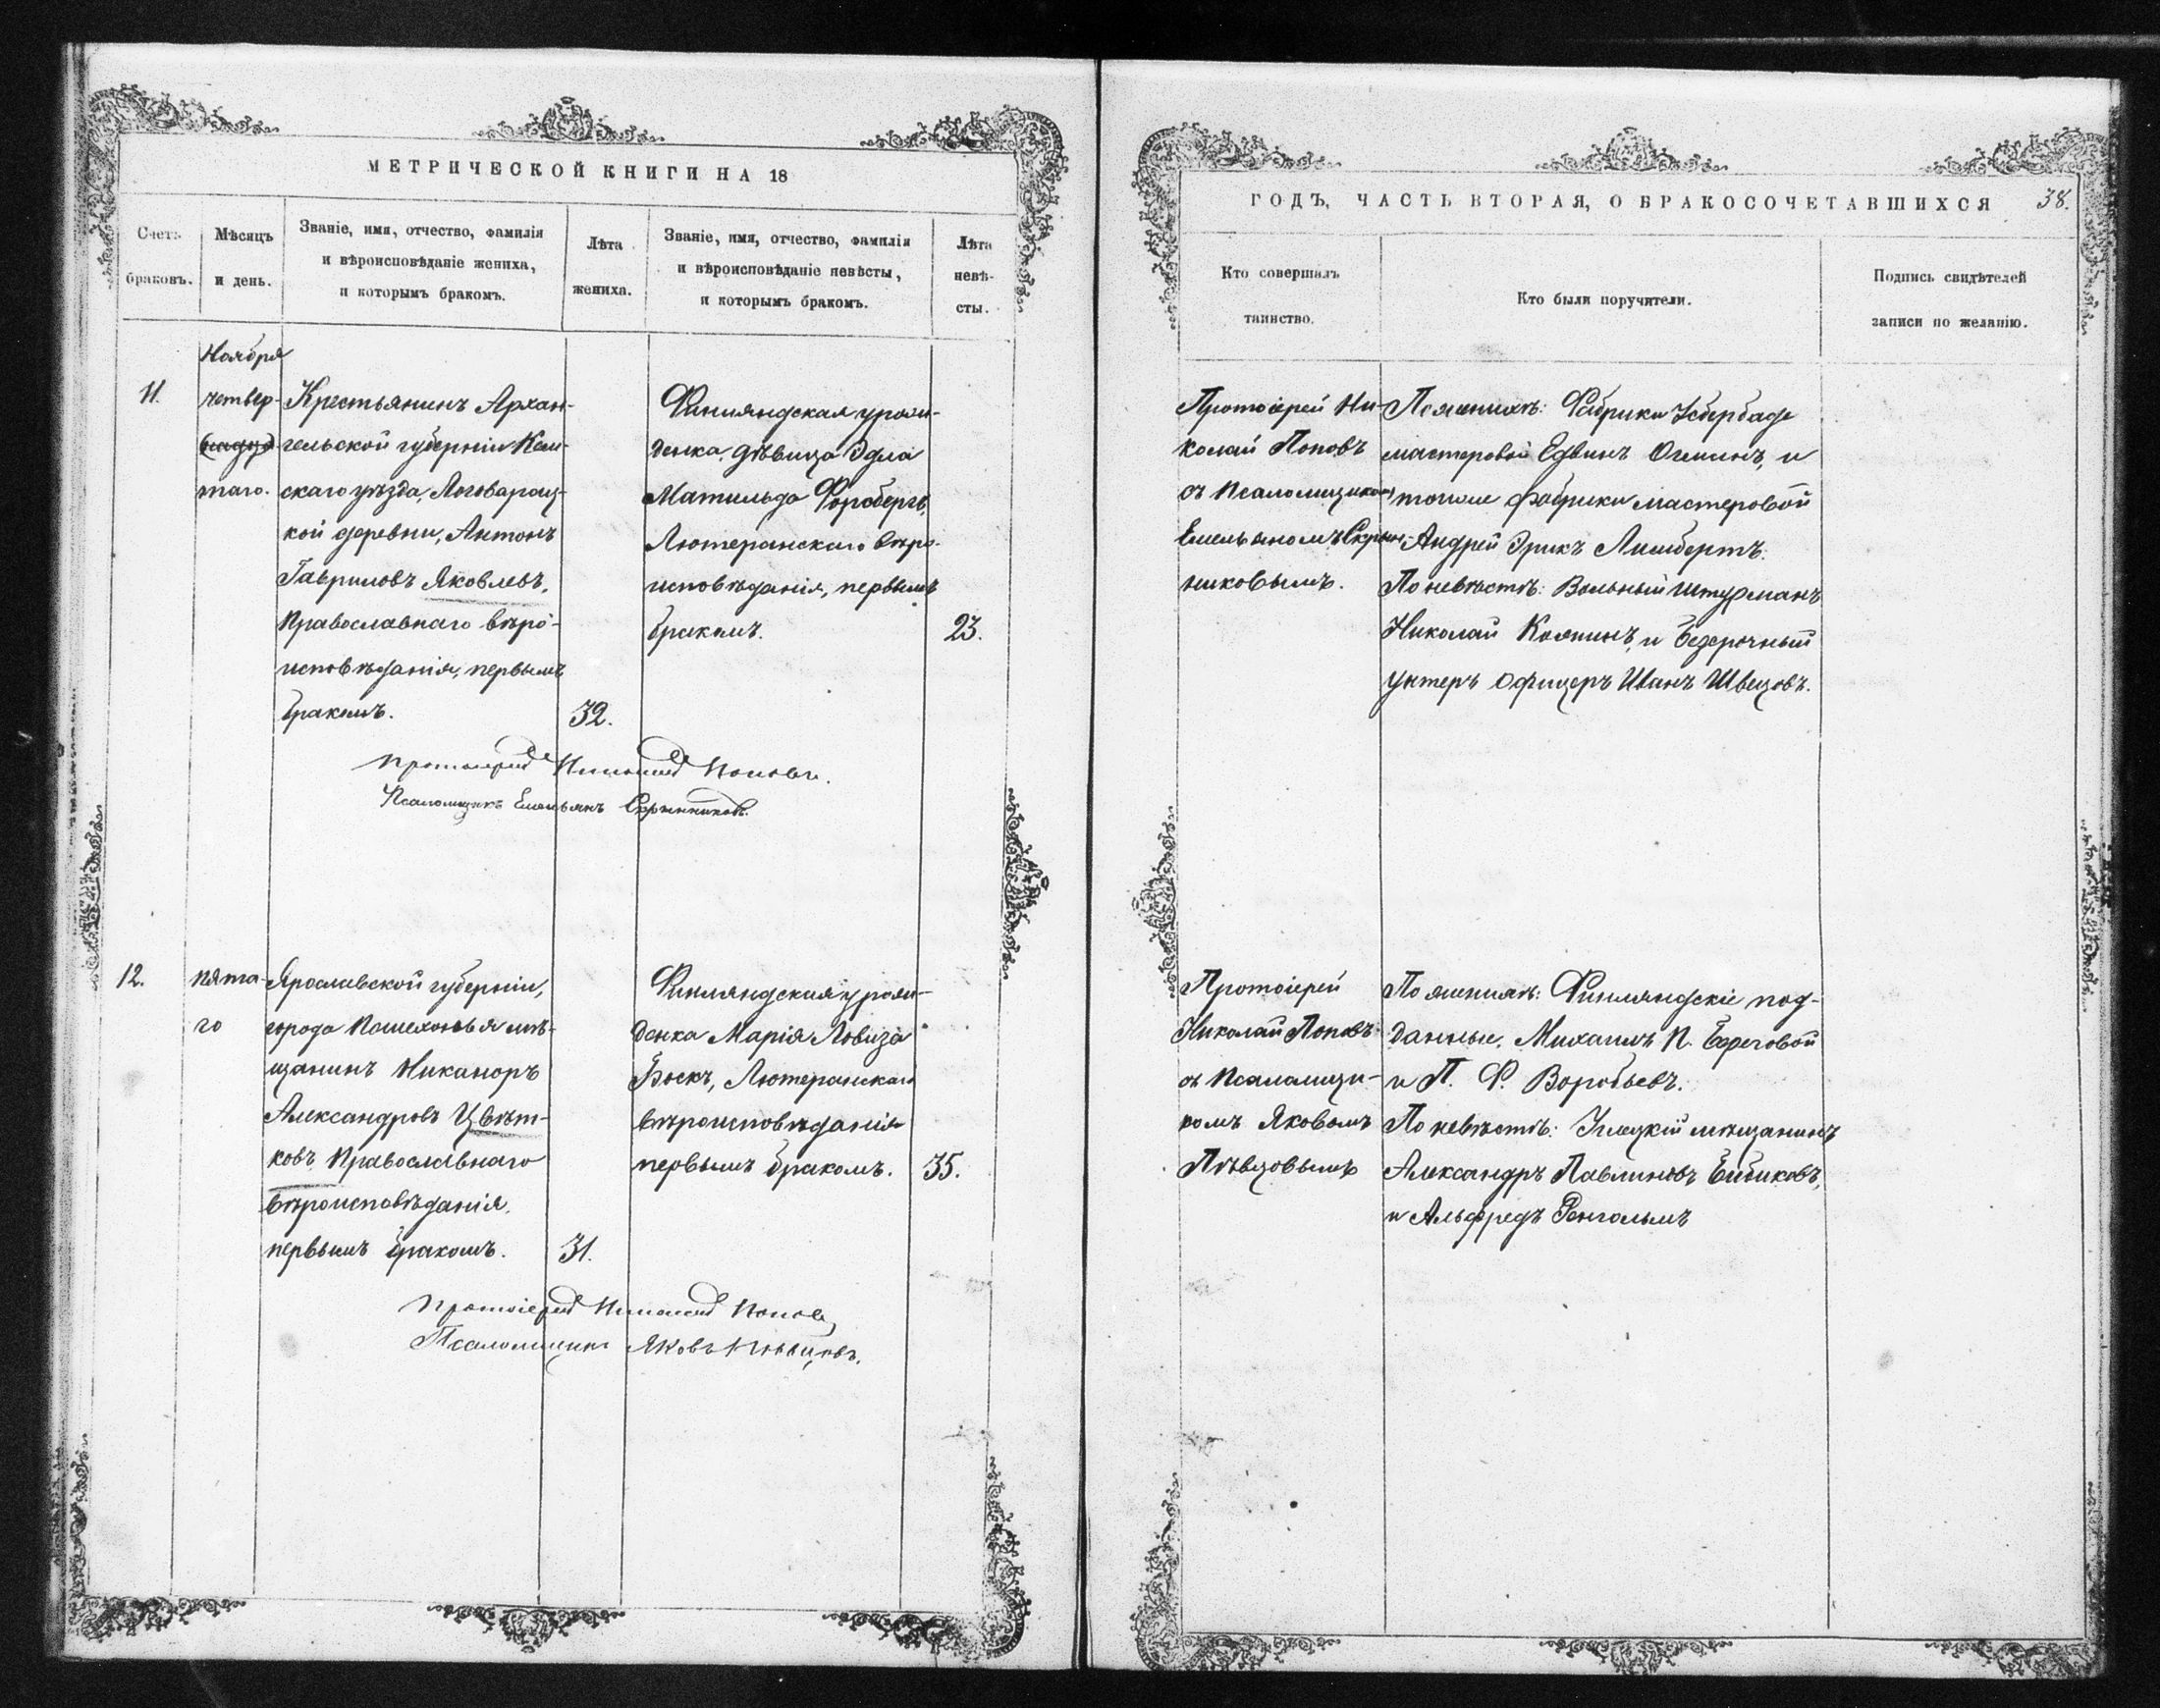 МЕТРИЧЕСКОЙ КНИГИ НА 18
Счетъ браковъ.
Мѣсяцъ и день.
Званіе, имя, отчество, фамилія
и вѣроисповѣданіе жениха,
и которымъ бракомъ.
Лѣта
жениха.
Званіе, имя, отчество, фамилія
и вѣроисповѣданіе невѣсты,
и которымъ бракомъ.
Лѣта
невѣ-
сты.
11.
Ноября
четвер-
таго.
Крестьянинъ Архан-
гельской губерніи Кем-
скаго уѣзда,
кой деревни, Антонъ
Гавриловъ Яковлевъ,
Православнаго вѣро-
исповѣданія, первымъ
бракомъ.
32.
Финляндская урожи-
денка дѣвица Эдла
Матильда Форсбергъ,
Лютеранскаго вѣро-
исповѣданія, первымъ
бракомъ.
23.
Протоіерей Николай Поповъ.
Псаломщикъ Емельянъ Скрынниковъ.
12.
пята-
го
Ярославской губерніи,
города Пошехонья мѣ-
щанинъ Никаноръ
Александровъ Цвѣт-
ковъ Православнаго
вѣроисповѣданія,
первымъ бракомъ.
31.
Финляндская урожи-
денка Марія Ловиза
Бекъ, Лютеранскаго
вѣроисповѣданія
первымъ бракомъ.
35.
Протоіерей Николай Поповъ
Псаломщикъ Яковъ Пѣвцовъ.
ГОДЪ, ЧАСТЬ ВТОРАЯ, О БРАКОСОЧЕТАВШИХСЯ
38.
Кто совершалъ
таинство.
Кто были поручители.
Подпись свидѣтелей
записи по желанію.
Протоіерей Ни-
колай Поповъ
съ Псаломщикомъ
Емельяномъ Скрын-
никовымъ.
По женихѣ: Фабрики
мастеровой Едвинъ и
тоже фабрики мастеровой
Андрей Эрикъ
По невѣстѣ: Вольный штурманъ
Николай и безсрочный
унтеръ офицеръ Иванъ Швецовъ.
Протоіерей
Николай Поповъ
съ Псаломщи-
комъ Яковомъ
Пѣвцовымъ
По женихѣ: Финляндскіе под-
данные, Михаилъ П. Береговой
и П. Ф. Воробьевъ.
По невѣстѣ: мѣщанинъ
Александръ Павлиновъ Бибиковъ,
и Альфредъ